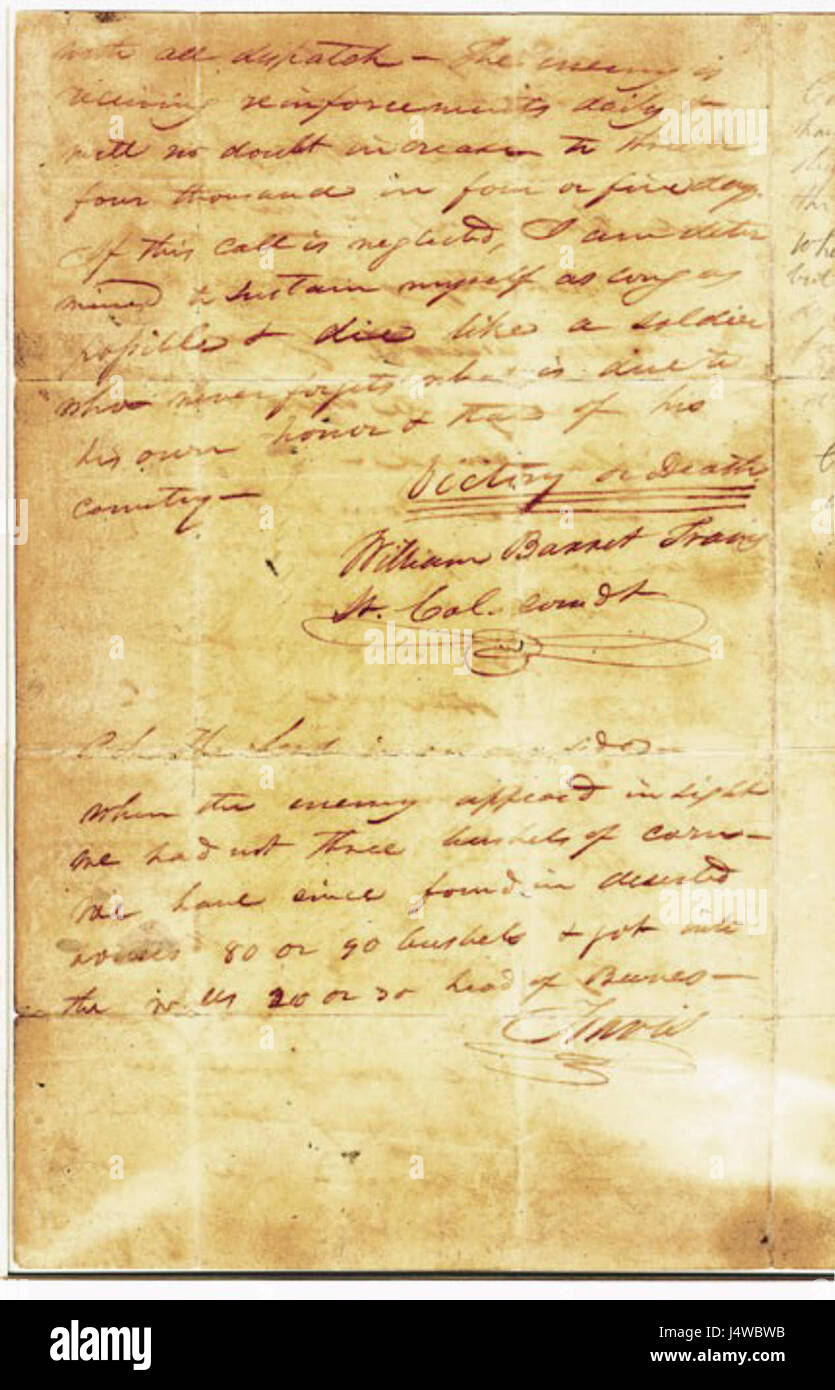 with all dispatch — The enemy is
receiving reinforcements daily &
will no doubt increase to three or
four thousand in four or five days.
If this call is neglected, I am deter
mined to sustain myself as long as
possible & die like a soldier
who never forgets what is due to
his own honor & that of his
country —
Victory or Death
William Barret Travis
Lt. Col. comdt
P.S. The Lord is on our side —
When the enemy appeard in sight
we had not three bushels of corn —
We have since found in deserted
houses 80 or 90 bushels & got into
the walls 20 or 30 head of Beeves —
Travis
alamy
Image ID: J4WBWB
www.alamy.com